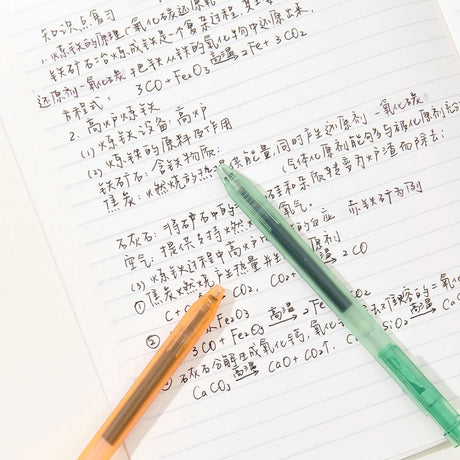 知识点复习
1. 炼铁的原理(氧化碳还原
铁矿石冶炼成铁是一个复杂过程,其主
还原剂一氧化碳把铁从铁的氧化物中还原出来,
方程式: 3CO + Fe₂O₃ 高温 2Fe + 3CO₂
2. 高炉炼铁
(1) 炼铁设备:高炉
(2) 炼铁的原料及作用
铁矿石:含铁物质;
焦炭:燃烧的热 能量,同时产生还原剂一氧化碳
(气体化原剂能够与被化原剂充分
石灰石:将矿石中的 杂质转变为炉渣而除去;
空气:提供支持燃 氧气。
(3) 炼铁过程中高炉 的反应 赤铁矿为例
① 焦炭燃烧产生热量并生 原剂
C + CO₂, CO₂ + 高温 2CO
② Fe₂O₃
3CO + Fe₂O₃ 高温 2Fe CO₂
石灰石分解生成氧化钙,氧化 的二氧化
CaCO₃ 高温 CaO + CO₂↑, Ca SiO₂ 高温 Ca